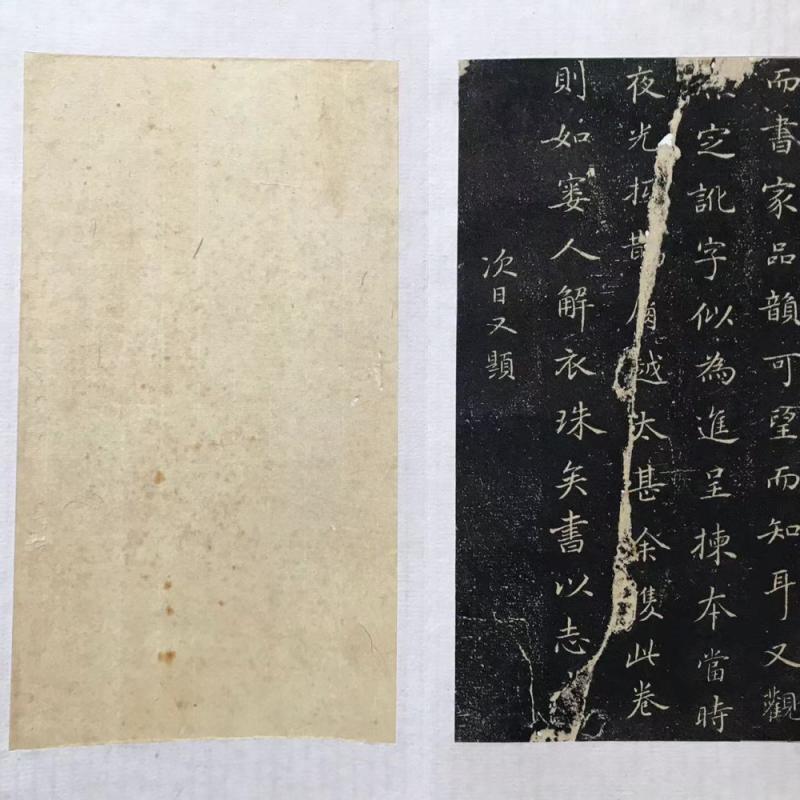 而書家品韻可望而知耳又觀
定訛字似為進呈揀本當時
夜光抵鵲越太甚余獲此卷
則如窶人解衣珠矣書以志
次日又題